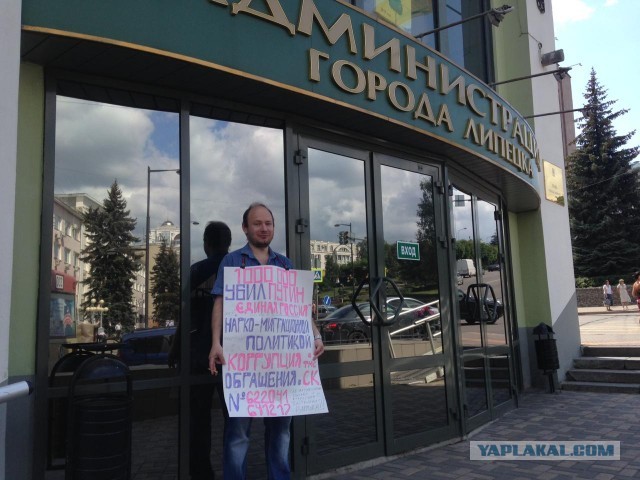 АДМИНИСТРАЦИЯ
ГОРОДА ЛИПЕЦКА
ВХОД
1000 000
УБИЛ ПУТИН
ЕДИНАЯ РОССИЯ
НАРКО-МИГРАЦИОННОЙ
ПОЛИТИКОЙ
КОРРУПЦИЯ
ОБРАЩЕНИЯ. СК
№ 622041
641213
YAPLAKAL.COM